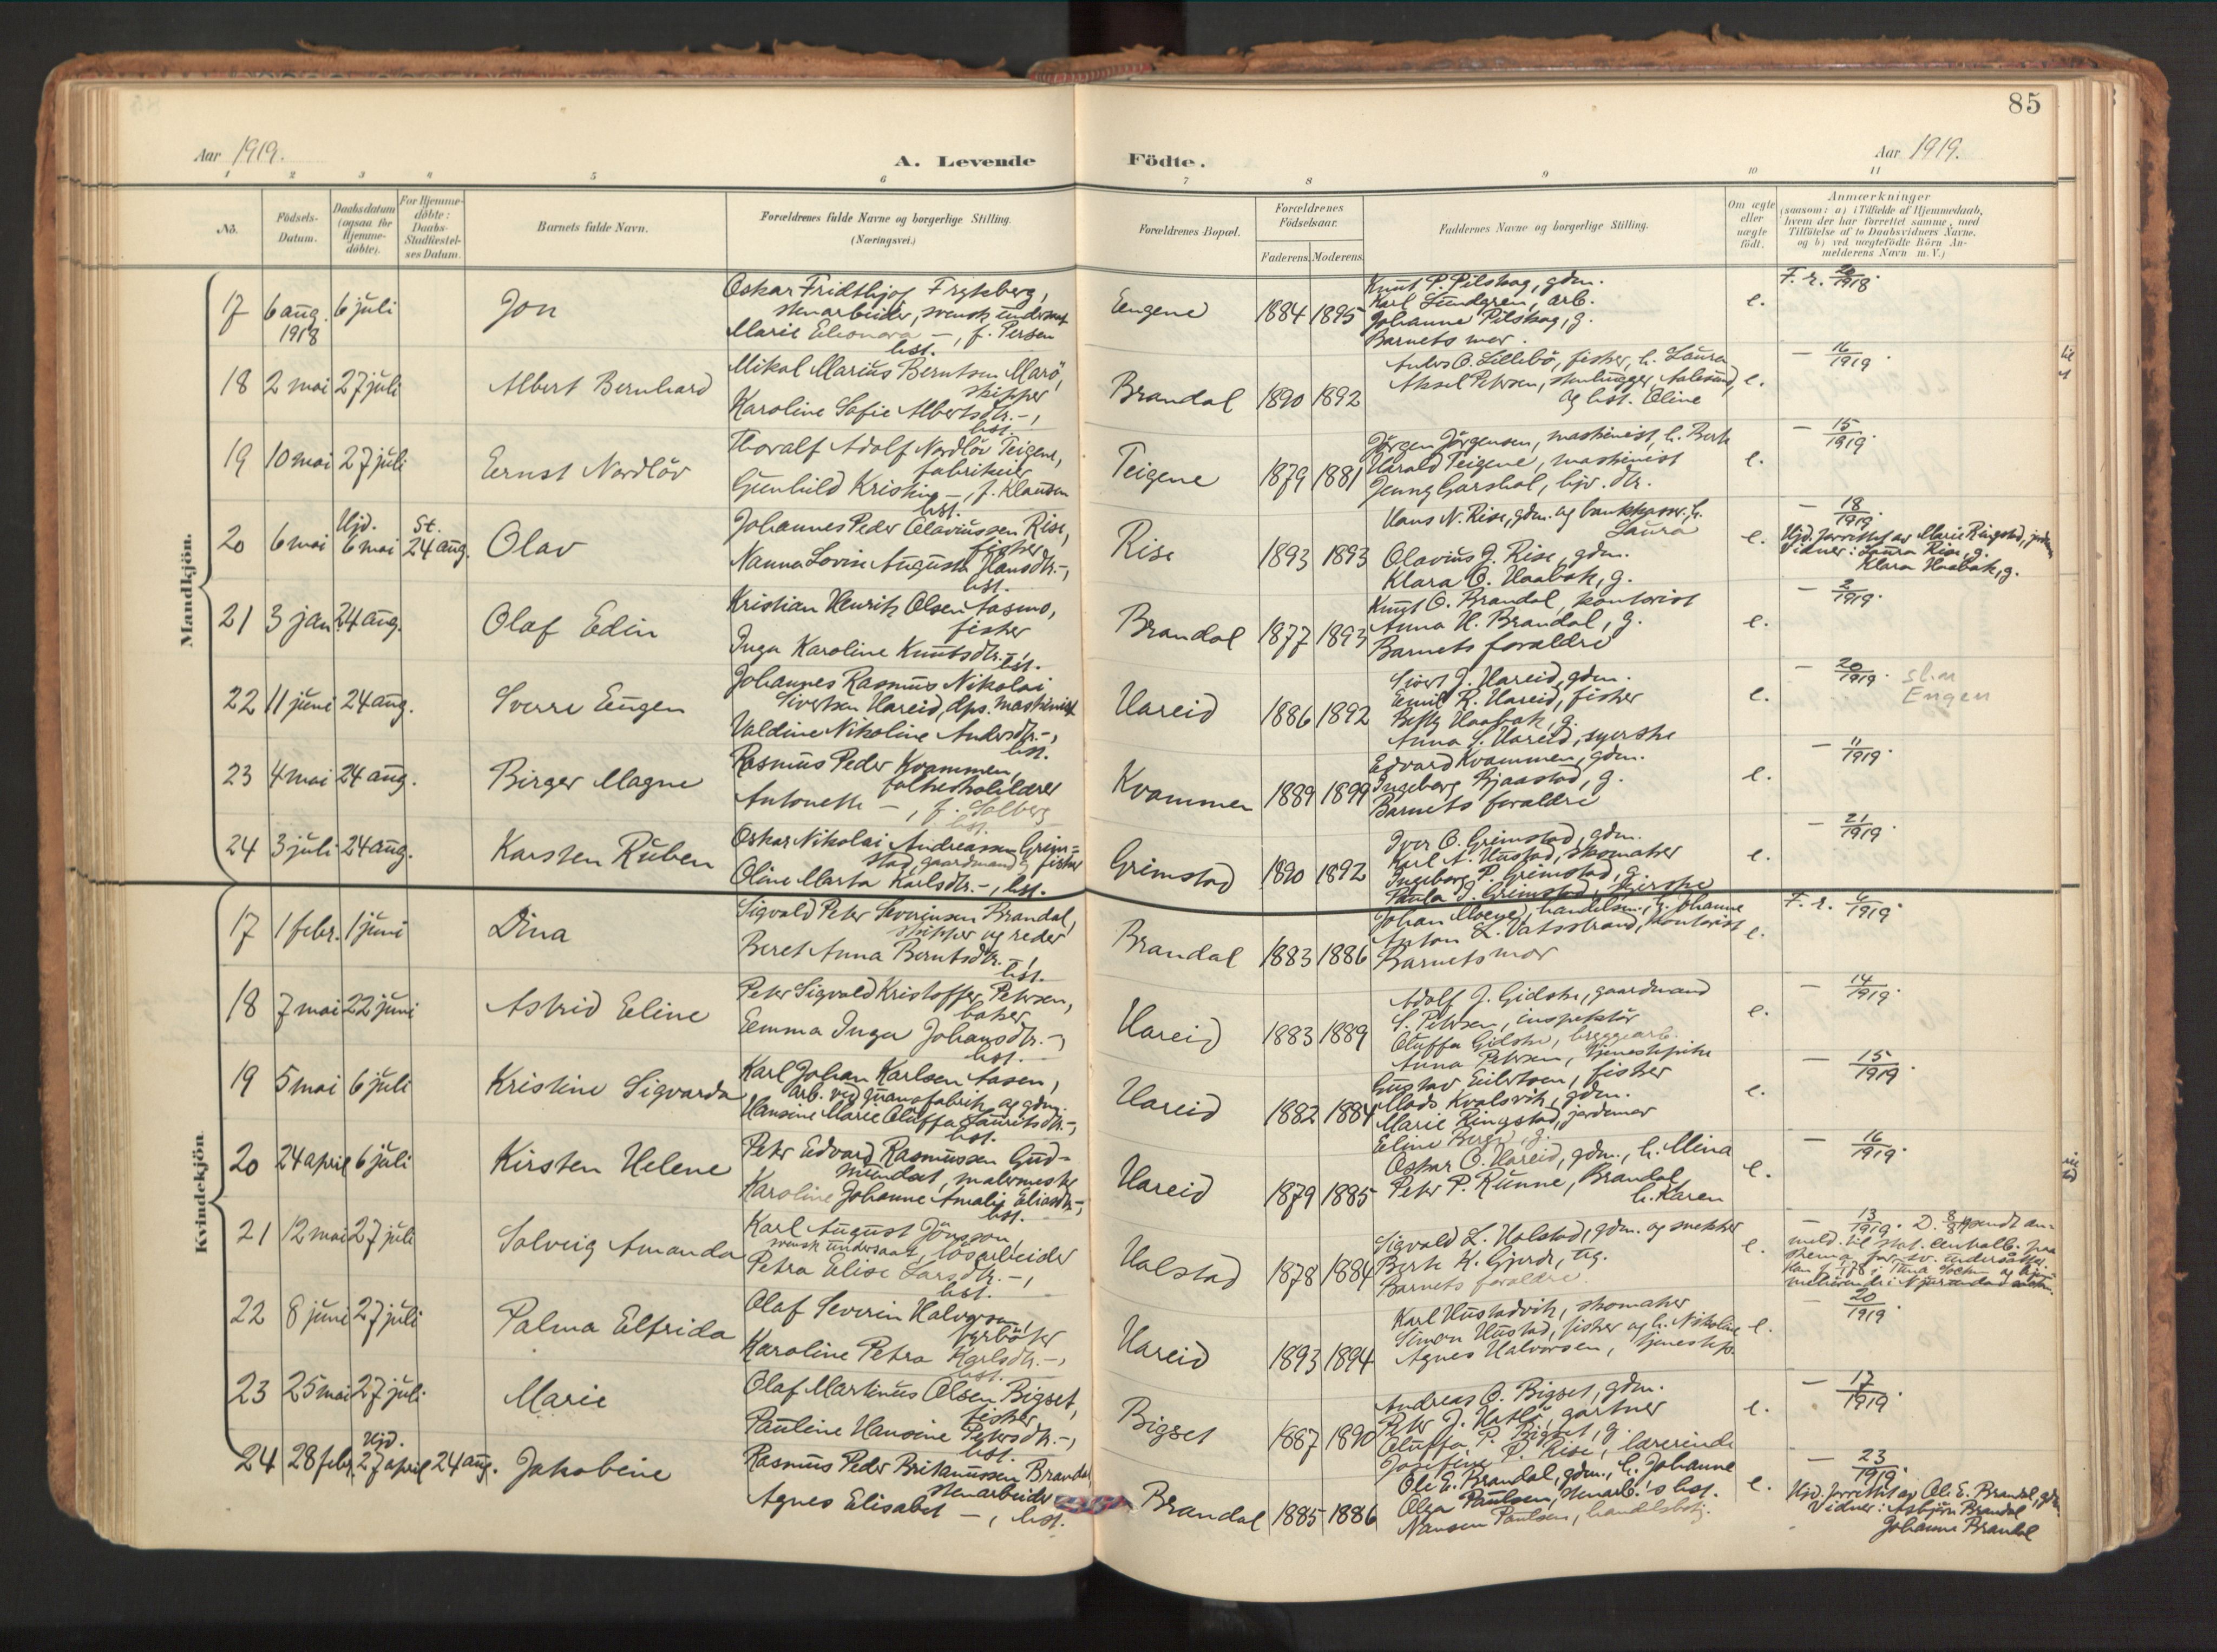 85
Aar 1919.
A. Levende
Födte.
Aar 1919.
1 2 3 4 5 6 7 8 9 10 11
No.
Födsels-
Datum.
Daabsdatum
(ogsaa for
Hjemme-
döbte).
For Hjemme-
döbte:
Daabs-
Stadfæstel-
ses Datum.
Barnets fulde Navn.
Forældrenes fulde Navne og borgerlige Stilling.
(Næringsvei.)
Forældrenes Bopæl.
Forældrenes
Födselsaar.
Faderens. Moderens.
Faddernes Navne og borgerlige Stilling.
Om ægte
eller
uægte
födt.
Anmærkninger
(saasom: a) i Tilfælde af Hjemmedaab,
hvem der har forrettet samme, med
Tilföielse af to Daabsvidners Navne,
og b) ved uægtefödte Börn An-
melderens Navn m. V.)
Mandkjön.
17 6 aug. 1918 6 juli
Jon
Oskar Fridthjof Frykberg,
stenarbeider, svensk undersaat
Marie Eleonora —, f. Persen
hst.
Eugene
1884 1895
Knut P. Pilskog, gdm.
Karl Lundgren, arb.
Johanne Pilskog, g.
Barnets mor.
e.
F. r. 20/1918.
18 2 mai 27 juli
Albert Bernhard
Mikal Marius Berntsen Marö,
skipper
Karoline Sofie Albertsdtr. —,
hst.
Brandal
1890 1892
Anders O. Lillebö, fisker, h. Laura
Aksel Petersen, stenhugger Aalesund,
og hst. Oline
e.
— 16/1919.
19 10 mai 27 juli
Ernst Nordlöv
Thoralf Adolf Nordlöv Teigene,
fabrikeier
Gunhild Kristine —, f. Klausen
hst.
Teigene
1879 1881
Jörgen Jörgensen, maskinist, h. Berte
Harald Teigene, maskinist
Jenny Garshol, hjv. dtr.
e.
— 15/1919.
20 6 mai Hjd. 6 mai St. 24 aug.
Olav
Johannes Peder Olaviussen Rise,
fisker
Nanna Lovise Augusta Hansdtr. —,
hst.
Rise
1893 1893
Hans N. Rise, gdm. og bankkasser, h.
Laura
Olavius J. Rise, gdm.
Klara O. Haabak, g.
e.
— 18/1919.
Hjd. forrettet av Marie Ringstad, jordmor
Vidner: Laura Rise, g.
Klara Haabak, g.
21 3 jan. 24 aug.
Olaf Edin
Kristian Henrik Olsen Aasmo,
fisker
Inga Karoline Knutsdtr. —,
hst.
Brandal
1877 1893
Knut O. Brandal, kontorist
Anna H. Brandal, g.
Barnets foraldre
e.
— 2/1919.
22 11 juni 24 aug.
Sverre Eugen
Johannes Rasmus Nikolai
Sivertsen Hareid, dps. maskinist
Valdine Nikoline Andersdtr. —,
hst.
Hareid
1886 1892
Sivert J. Hareid, gdm.
Emil R. Hareid, fisker
Betty Haabak, g.
Anna S. Hareid, syerske
e.
— 20/1919.
Engen
23 4 mai 24 aug.
Birger Magne
Rasmus Peder Kvammen,
folkeskolelærer
Antonette —, f. Solberg
hst.
Kvammen
1889 1899
Edvard Kvammen, gdm.
Ingeborg Bjaastad, g.
Barnets foraldre
e.
— 11/1919.
24 3 juli 24 aug.
Karsten Ruben
Oskar Nikolai Andreassen Grim=
stad, gaardmand og fisker
Oline Marta Karlsdtr. —, hst.
Grimstad
1890 1892
Iver O. Grimstad, gdm.
Karl A. Hustad, skomaker
Ingeborg P. Grimstad, g.
Paula J. Grimstad,
e.
— 21/1919.
Kvindekjön.
17 1 febr. 1 juni
Dina
Sigvald Peter Severinsen Brandal,
skipper og reder
Beret Anna Berntsdtr. —,
hst.
Brandal
1883 1886
Johan Moege, handelsm., h. Johanne
Anton L. Vatsstrand, kontorist
Barnets mor
e.
F. r. 6/1919.
18 7 mai 22 juni
Astrid Eline
Peter Sigvald Kristoffer Petersen,
baker
Emma Inga Johansdtr. —,
hst.
Hareid
1883 1889
Adolf J. Gidske, gaardmand
S. Petersen, inspektör
Oluffa Gidske, bryggearb.
Anna Petersen, tjenestepike
e.
— 14/1919.
19 5 mai 6 juli
Kristine Sigvarda
Karl Johan Karlsen Aasen,
arb. ved guanofabrik og gdm.
Hansine Marie Oluffa Lauritsdtr. —,
hst.
Hareid
1882 1884
Gustav Eilertsen, fisker
Mads Kvalsvik, gdm.
Marie Ringstad, jordmor
Eline Berge, g.
e.
— 15/1919.
20 24 april 6 juli
Kirsten Helene
Peter Edvard Rasmussen Gud-
mundset, malermester
Karoline Johanne Amalie Eliasdtr. —,
hst.
Hareid
1879 1885
Oskar O. Hareid, gdm., h. Mina
Peter P. Runne, Brandal
h. Karen
e.
— 16/1919.
21 12 mai 27 juli
Solveig Amanda
Karl August Jönsson,
svensk undersaat, lösarbeider
Petra Elise Larsdtr. —,
hst.
Halstad
1878 1884
Sigvald L. Halstad, gdm. og snekker
Berte K. Gjerde, ug.
Barnets foraldre.
e.
— 13/1919. D. 8/8 sendt an-
meld. til stat. Centralb. paa
skema for sv. undersåtter.
22 8 juni 27 juli
Palma Elfrida
Olaf Severin Halvorsen,
fyrböter
Karoline Petra Karlsdtr. —,
hst.
Hareid
1893 1894
Karl Hustadvik, skomaker
Simon Hustad, fisker og h. Nikoline
Agnes Halvorsen, tjenestep.
e.
— 20/1919.
23 25 mai 27 juli
Marie
Olaf Martinus Olsen Bigset,
fisker
Pauline Hansine Petersdtr. —,
hst.
Bigset
1887 1890
Andreas O. Bigset, gdm.
Peter J. Hatlö, gartner
Oluffa P. Bigset, g.
Josefine P. Rise, lærerinde
e.
— 17/1919.
24 28 febr. Hjd. 27 april 24 aug.
Jakobine
Rasmus Peder Britanussen Brandal
stenarbeider
Agnes Elisabet —, hst.
Brandal
1885 1886
Ole E. Brandal, gdm., h. Johanne
Olga Paulsen, stenarb.'s hst.
Nansen Paulsen, handelsbetj.
e.
— 23/1919.
Hjd. forrettet av Ole E. Brandal, gdm.
Vidner: Asbjörn Brandal
Johanne Brandal